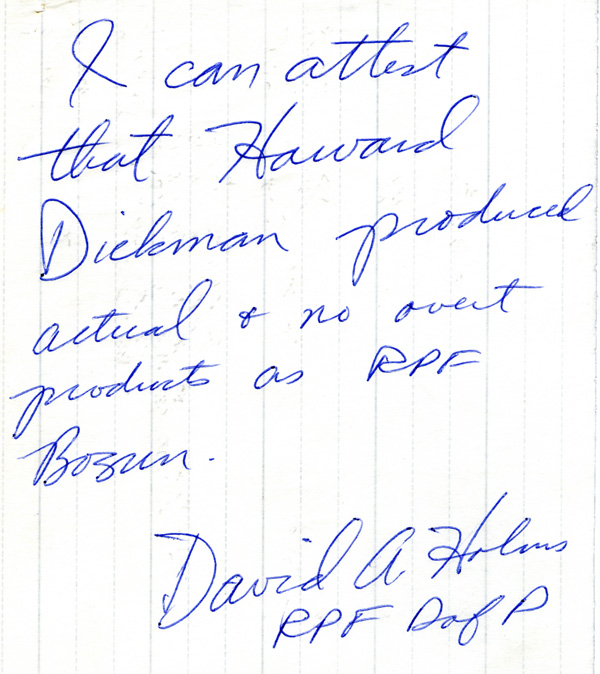 I can attest
that Howard
Dickman produced
actual & no overt
products as RPF
Bosun.
David A. Holms
RPF D of P